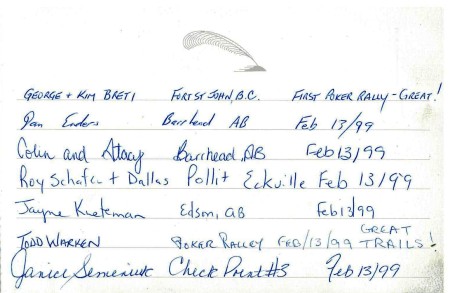 GEORGE + KIM BRETI FORT ST JOHN, B.C. FIRST POKER RALLY - GREAT!
Dan Enders Barrhead AB Feb 13/99
Colin and Stacy Barrhead, AB Feb 13/99
Roy Schafer + Dallas Pollit Eckville Feb 13/99
Jayne Kueteman Edson, AB Feb 13/99
TODD WARREN POKER RALLEY FEB/13/99 GREAT TRAILS!
Janice Semeniuk Check Point #3 Feb 13/99